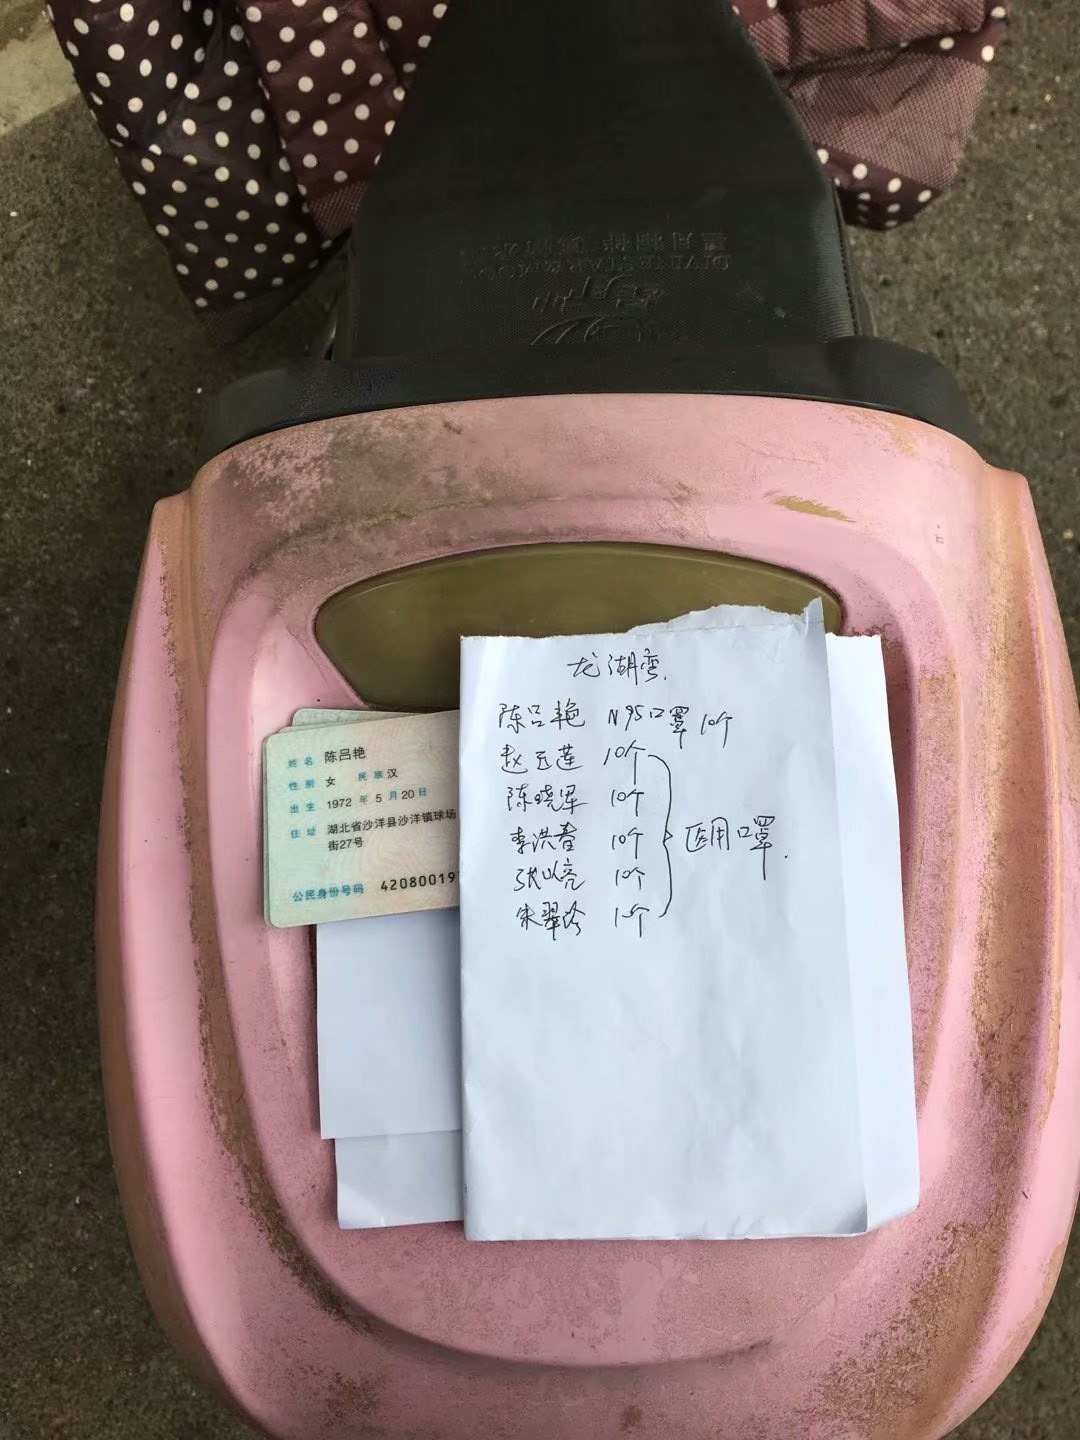 龙湖弯.
陈吕艳 N95口罩10个
赵玉莲 10个
陈晓军 10个
李洪春 10个
张以亮 10个
朱翠珍 10个
医用口罩.
姓名 陈吕艳
性别 女 民族 汉
出生 1972 年 5 月 20 日
住址 湖北省沙洋县沙洋镇球场
街27号
公民身份号码 42080019